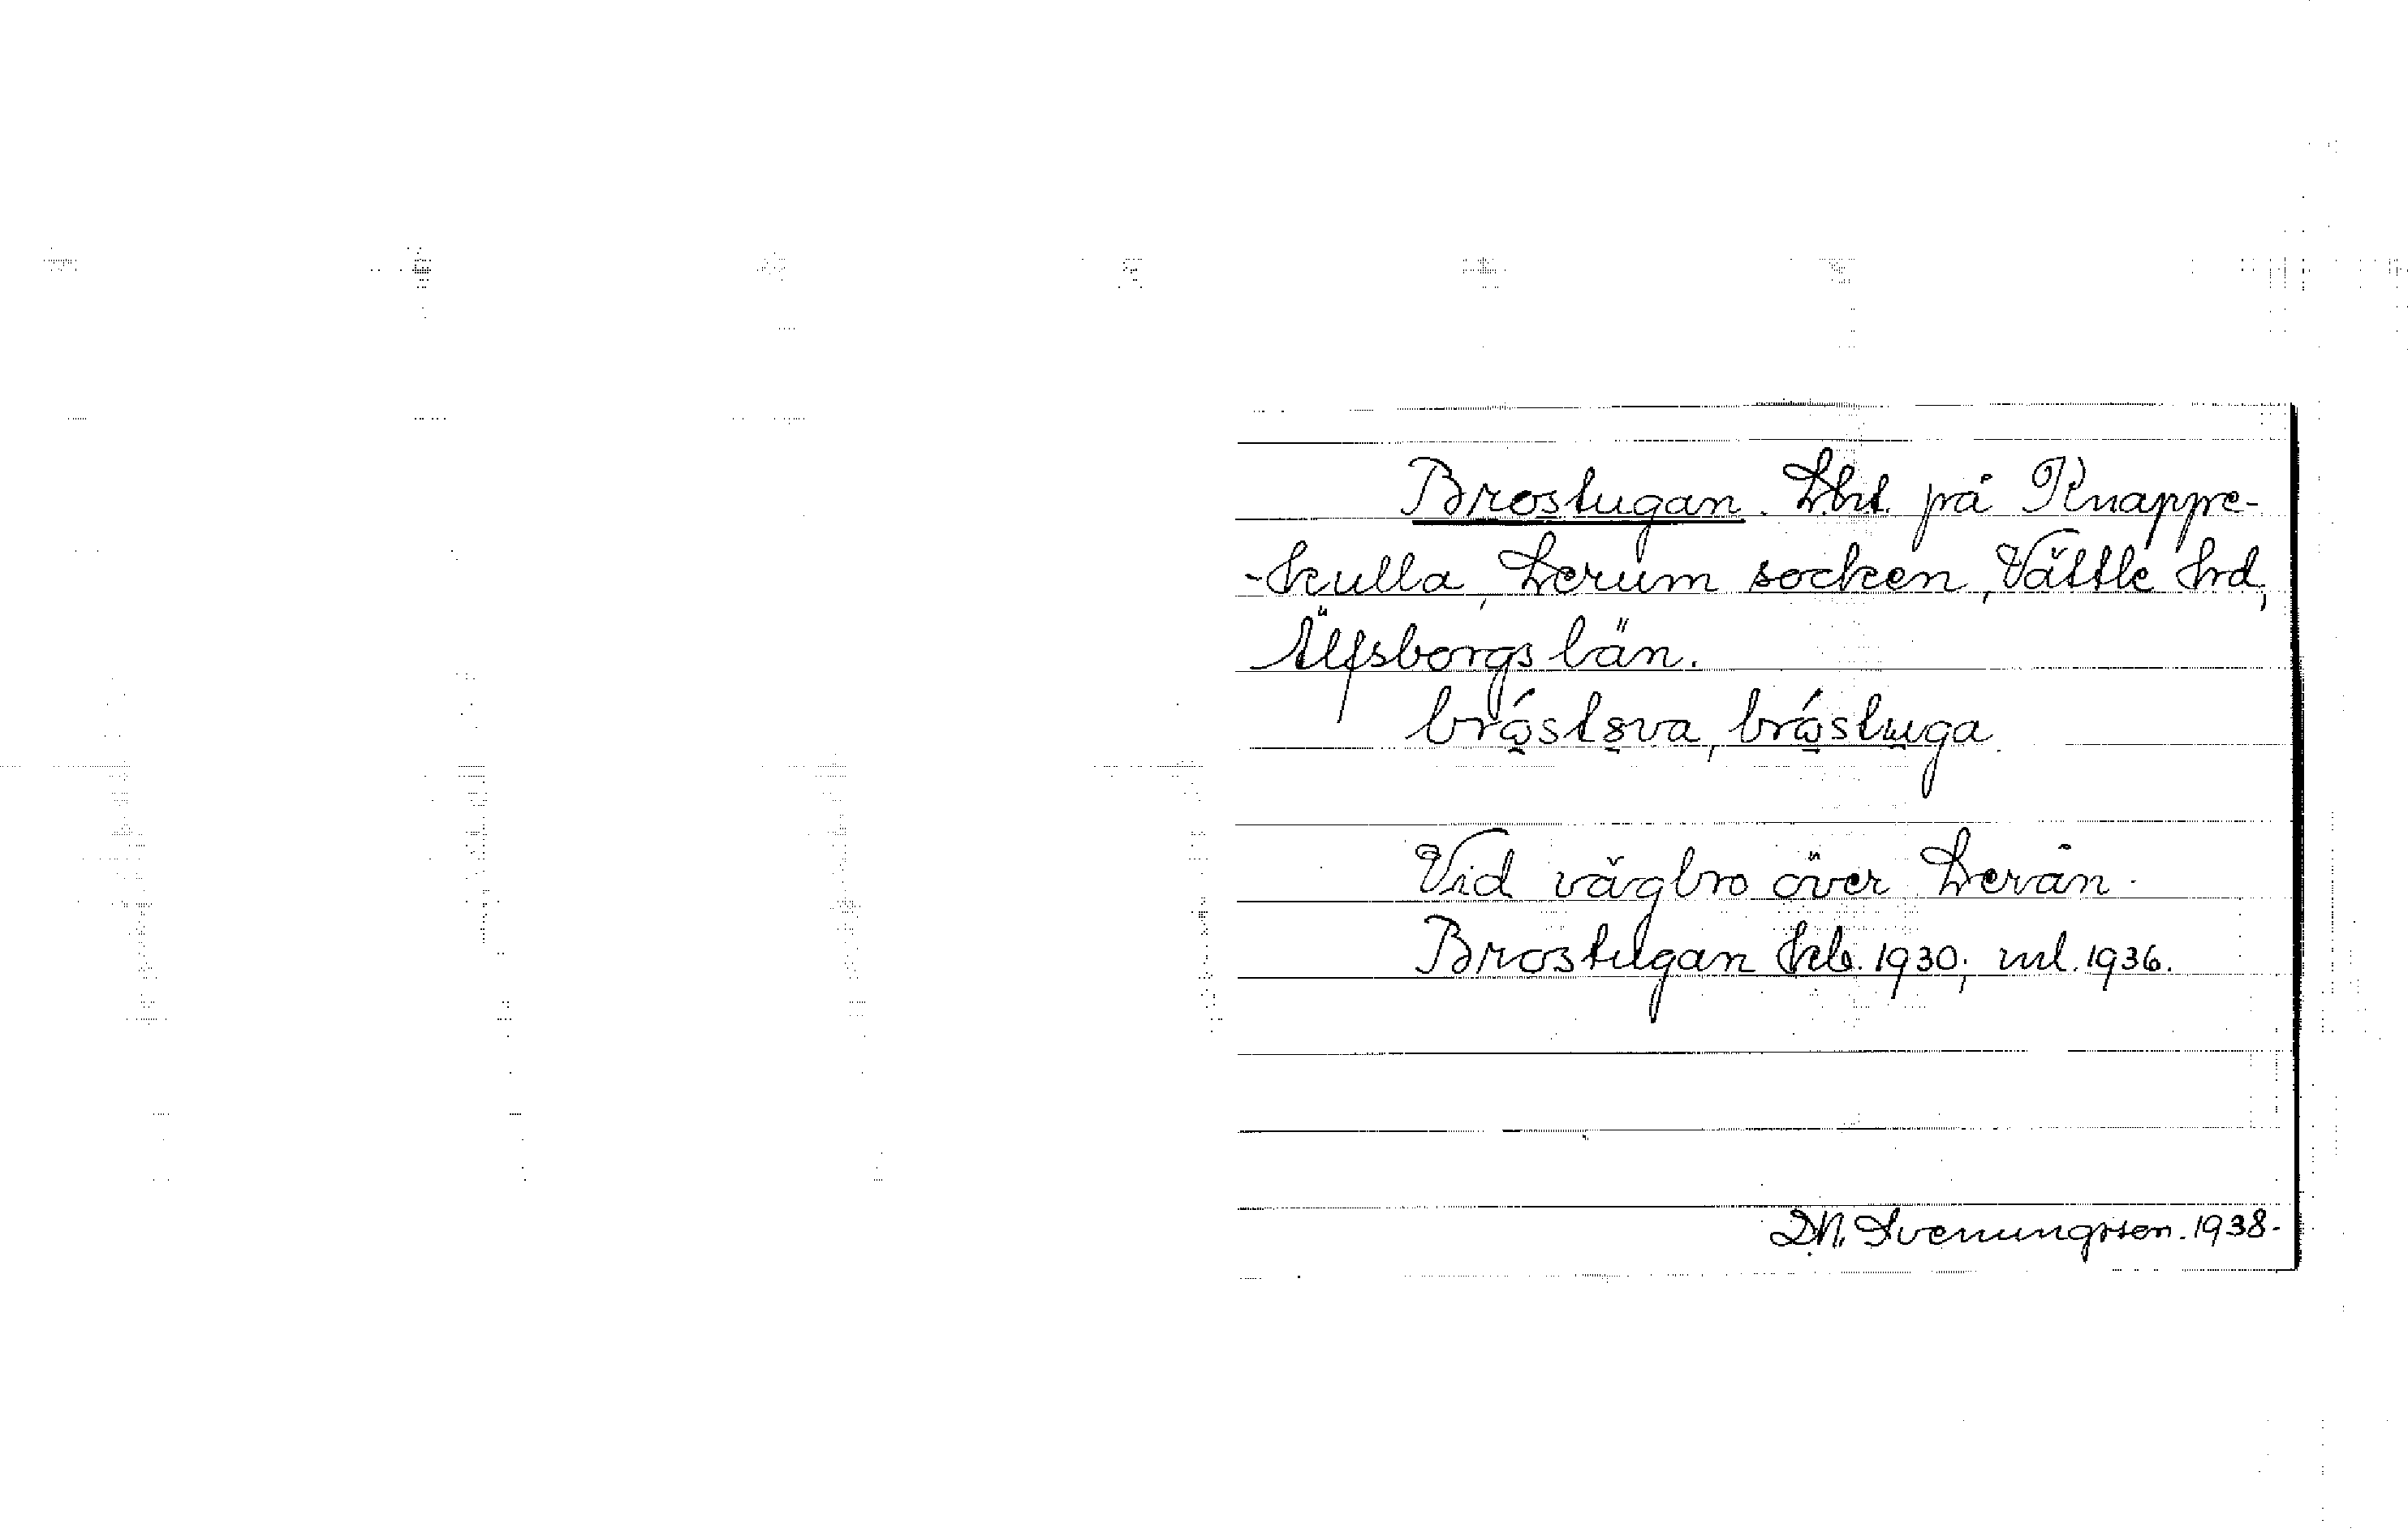 Brostugan. Lht. på Knappe-
-kulla, Lerum socken, Vättle hrd,
Älfsborgs län.
bråstova, bråstuga.
Vid vägbro över Lerån.
Brostugan Kb. 1930; ml. 1936.
D.N. Svenungsson. 1938.